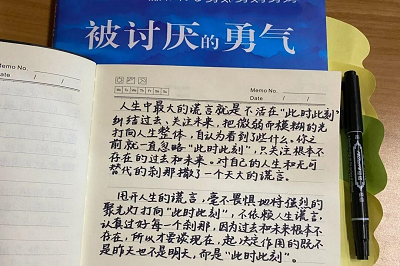 被讨厌的勇气
Memo No.
Memo No.
Date / /
Mo Tu We Th Fr Sa Su
人生中最大的谎言就是不活在“此时此刻”
纠结过去、关注未来，把微弱而模糊的光
打向人生整体，自认为看到了些什么。你之
前就一直忽略“此时此刻”，只关注根本不
存在的过去和未来。对自己的人生和无可
替代的刹那撒了一个天大的谎言。
甩开人生的谎言，毫不畏惧地将强烈的
聚光灯打向“此时此刻”，不依赖人生谎言，
认真过好每一个刹那，因为过去和未来根本不
存在，所以才要谈现在，起决定作用的既不
是昨天也不是明天，而是“此时此刻”。